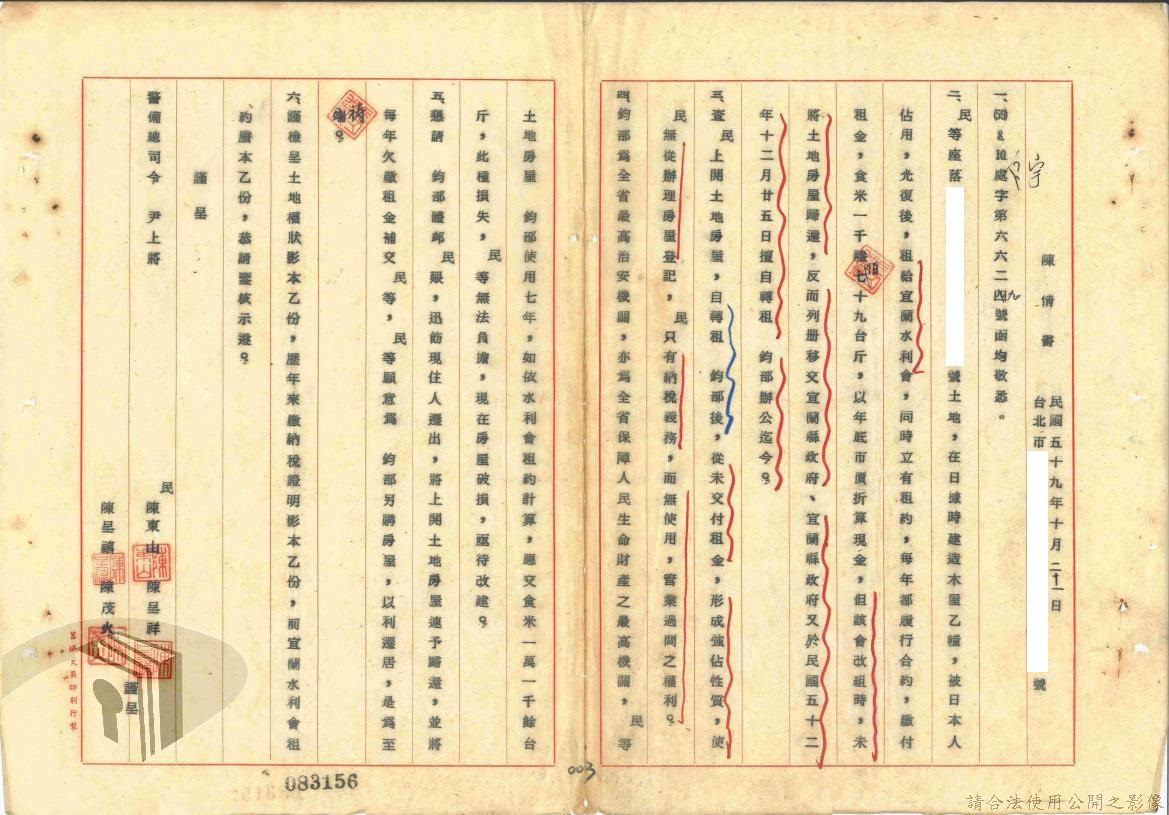 陳情書
民國五十九年十月二十一日
台北市 號
一、59 8. 10. 處字第六六二四號函均敬悉。
九
二、民等座落 號土地,在日據時建造木屋乙幢,被日本人
佔用,光復後,租給宜蘭水利會,同時立有租約,每年都履行合約,繳付
租金,食米一千 佰七十九台斤,以年底市價折算現金,但該會改組時,未
將土地房屋歸還,反而列册移交宜蘭縣政府、宜蘭縣政府又於民國五十二
年十二月廿五日擅自轉租 鈞部辦公迄今。
三、查民上開土地房屋,自轉租 鈞部後,從未交付租金,形成強佔性質,使
民無從辦理房屋登記,民只有納稅義務,而無使用,營業過問之權利。
四、鈞部為全省最高治安機關,亦為全省保障人民生命財產之最高機關,民等
土地房屋 鈞部使用七年,如依水利會租約計算,應交食米一萬一千餘台
斤,此種損失,民等無法負擔,現在房屋破損,亟待改建。
五、懇請 鈞部體邮民艱,迅飭現住人遷出,將上開土地房屋速予歸還,並將
每年欠繳租金補交民等,民等願意為 鈞部另購房屋,以利遷居,是為至
禱。
六、謹檢呈土地權狀影本乙份,歷年來繳納稅證明影本乙份,前宜蘭水利會租
約謄本乙份,恭請鑒核示遵。
謹呈
警備總司令 尹上將
民 陳東山 陳呈祥
陳呈禧 陳茂火 謹呈
文具印刷行製
083156
003
請合法使用公開之影像